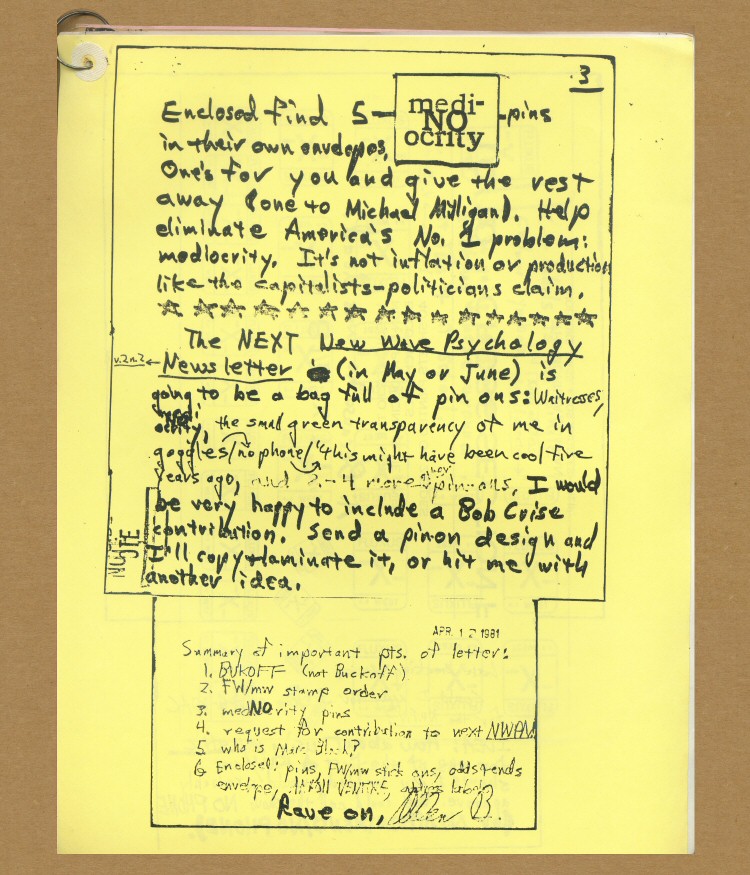 3
Enclosed find 5— medi-NO ocrity -pins
in their own envelopes,
One's for you and give the rest
away (one to Michael Milligan). Help
eliminate America's No. 1 problem:
mediocrity. It's not inflation or production
like the capitalists-politicians claim.
The NEXT New Wave Psychology
v.2 n.2 ← Newsletter (in May or June) is
going to be a bag full of pin ons: Waitresses,
medi
ocrity, the small green transparency of me in
goggles/no phone/"this might have been cool five
years ago, and 2-4 more pin-ons. I would
be very happy to include a Bob Crise
contribution. Send a pin on design and
I'll copy+laminate it, or hit me with
another idea.
NOTE
APR. 12 1981
Summary of important pts. of letter:
1. BUKOFF (not Buckoff)
2. FW/mw stamp order
3. medNOcrity pins
4. request for contribution to next NWPN
5. who is Marc Bloch?
6 Enclosed: pins, FW/mw stick ons, odds+ends
envelope,
Rave on, Allen B.